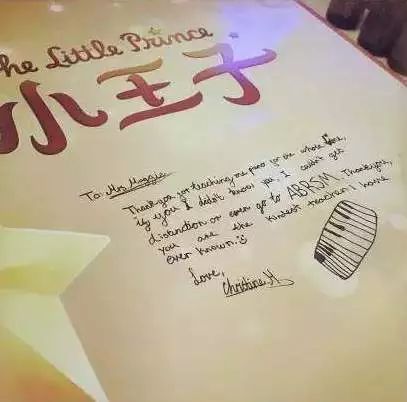 The Little Prince
小王子
To: Mrs Maggie
Thankyou for teaching me piano for the whole time,
if you I didn't know you, I couldn't get
distinction or even go to ABRSM Thankyou,
you are the kindest teacher I have
ever known.
Love,
Christine.H